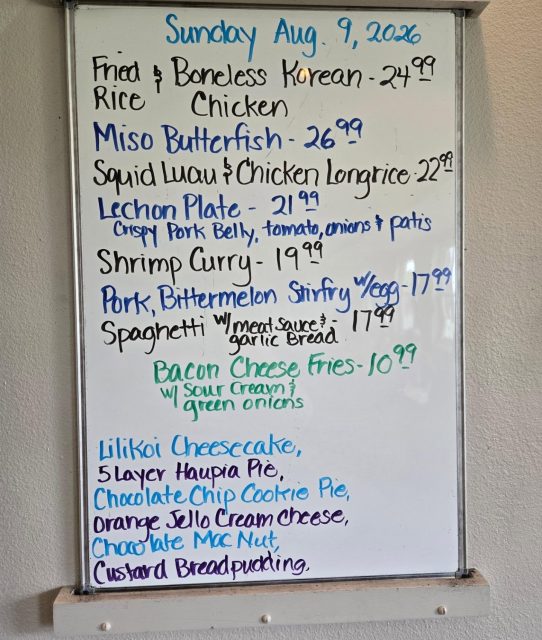 Sunday Aug. 9, 2026
Fried & Boneless Korean - 24 99
Rice Chicken
Miso Butterfish - 26 99
Squid Luau & Chicken Longrice - 22 99
Lechon Plate - 21 99
Crispy Pork Belly, tomato, onions & patis
Shrimp Curry - 19 99
Pork, Bittermelon Stirfry w/egg - 17 99
Spaghetti w/meat sauce & - 17 99
garlic Bread
Bacon Cheese Fries - 10 99
w/ Sour Cream &
green onions
Lilikoi Cheesecake,
5 Layer Haupia Pie,
Chocolate Chip Cookie Pie,
Orange Jello Cream Cheese,
Chocolate Mac Nut,
Custard Breadpudding,